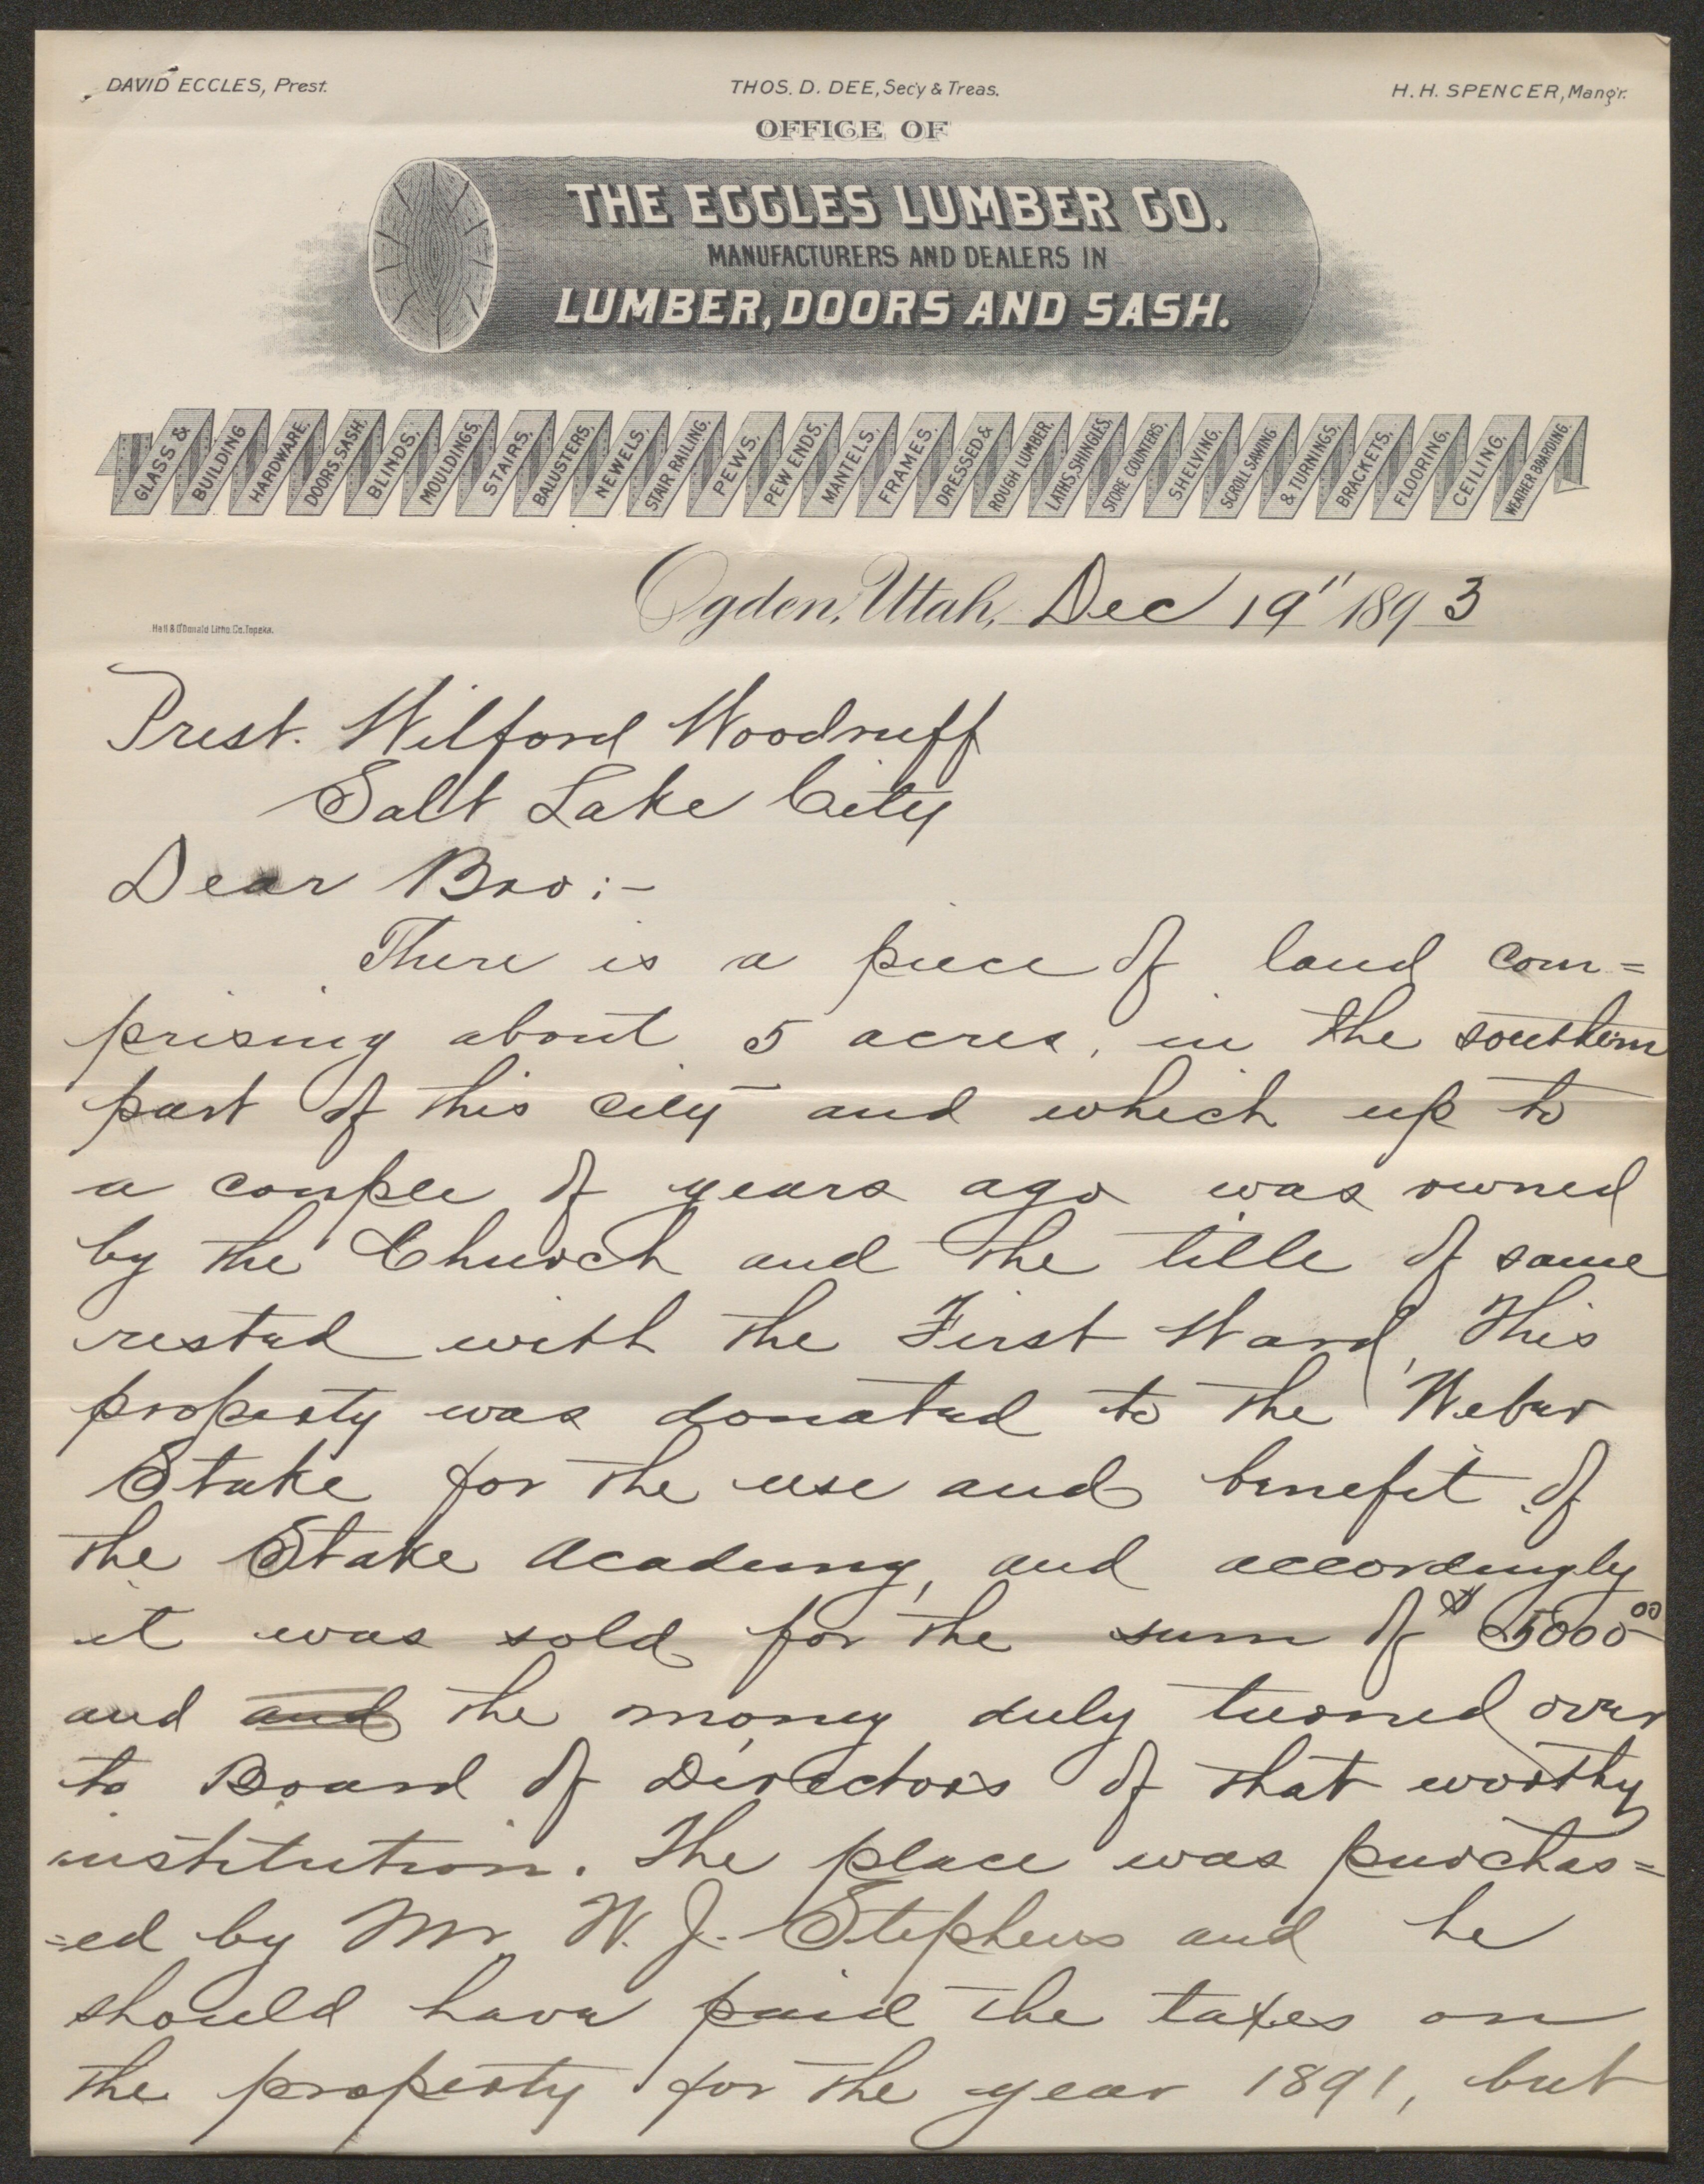 DAVID ECCLES, Prest.
THOS. D. DEE, Sec'y & Treas.
H. H. SPENCER, Mang'r.
OFFICE OF
THE ECCLES LUMBER CO.
MANUFACTURERS AND DEALERS IN
LUMBER, DOORS AND SASH.
GLASS & BUILDING HARDWARE, DOORS, SASH, BLINDS, MOULDINGS, STAIRS, BALUSTERS, NEWELS, STAIR RAILING, PEWS, PEW ENDS, MANTELS, FRAMES, DRESSED & ROUGH LUMBER, LATHS, SHINGLES, STORE COUNTERS, SHELVING, SCROLL SAWING & TURNINGS, BRACKETS, FLOORING, CEILING, WEATHER BOARDING.
Ogden, Utah, Dec 19" 1893
Hall & O'Donald Litho. Co. Topeka.
Prest. Wilford Woodruff
Salt Lake City
Dear Bro:-
There is a piece of land com=
prising about 5 acres, in the southern
part of this city and which up to
a couple of years ago was owned
by the Church and the title of same
rested with the First Ward, This
property was donated to the Weber
Stake for the use and benefit of
the Stake Academy, and accordingly
it was sold for the sum of $5000.00
and and the money duly turned over
to Board of Directors of that worthy
institution. The place was purchas=
=ed by Mr W. J. Stephens and he
should have paid the taxes on
the property for the year 1891, but